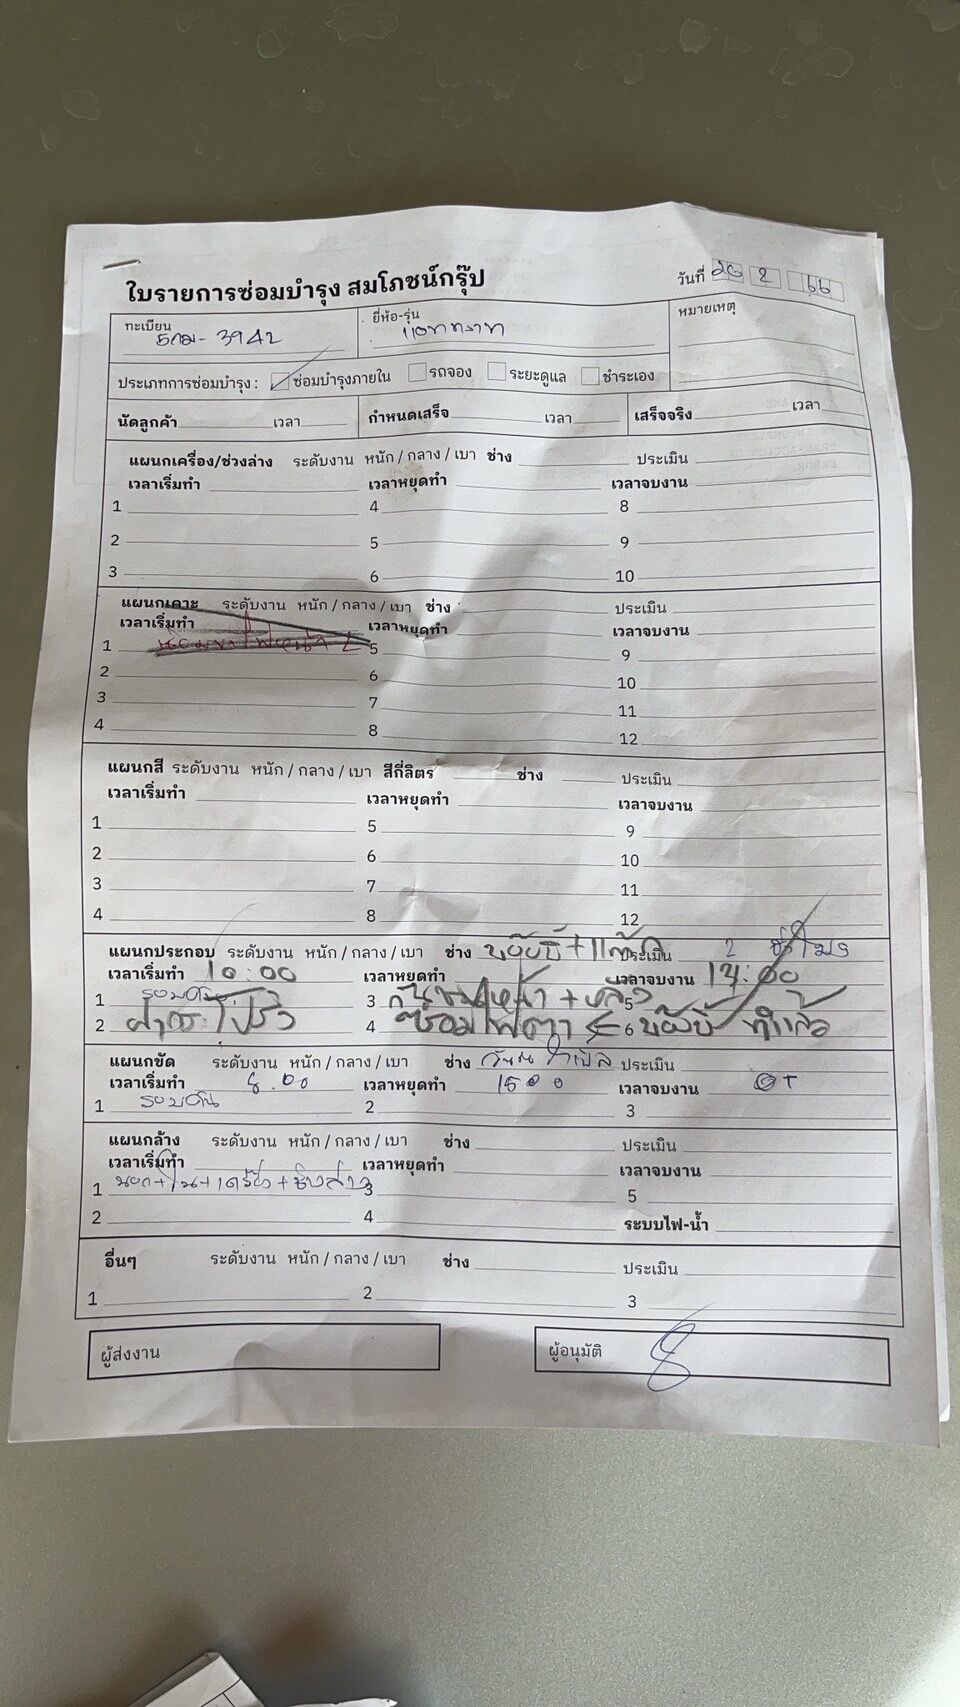 ใบรายการซ่อมบำรุง สมโภชน์กรุ๊ป
วันที่ 26 2 66
ทะเบียน 5กม- 3942
ยี่ห้อ-รุ่น
หมายเหตุ
ประเภทการซ่อมบำรุง : ซ่อมบำรุงภายใน รถจอง ระยะดูแล ชำระเอง
นัดลูกค้า เวลา กำหนดเสร็จ เวลา เสร็จจริง เวลา
แผนกเครื่อง/ช่วงล่าง ระดับงาน หนัก / กลาง / เบา ช่าง ประเมิน
เวลาเริ่มทำ เวลาหยุดทำ เวลาจบงาน
1 4 8
2 5 9
3 6 10
แผนกเคาะ ระดับงาน หนัก / กลาง / เบา ช่าง ประเมิน
เวลาเริ่มทำ เวลาหยุดทำ เวลาจบงาน
1 5 9
2 6 10
3 7 11
4 8 12
แผนกสี ระดับงาน หนัก / กลาง / เบา สีกี่ลิตร ช่าง ประเมิน
เวลาเริ่มทำ เวลาหยุดทำ เวลาจบงาน
1 5 9
2 6 10
3 7 11
4 8 12
แผนกประกอบ ระดับงาน หนัก / กลาง / เบา ช่าง ประเมิน 2 ชั่วโมง
เวลาเริ่มทำ 10:00 เวลาหยุดทำ เวลาจบงาน 14:00
1 รอบคัน 3 กันชนหน้า + หลัง 5
2 ฝากระโปรง 4 ซ่อมไฟตา 6 ทำแล้ว
แผนกขัด ระดับงาน หนัก / กลาง / เบา ช่าง ประเมิน
เวลาเริ่มทำ 8.00 เวลาหยุดทำ 1500 เวลาจบงาน OT
1 รอบคัน 2 3
แผนกล้าง ระดับงาน หนัก / กลาง / เบา ช่าง ประเมิน
เวลาเริ่มทำ เวลาหยุดทำ เวลาจบงาน
1 นอก+ใน+เครื่อง+ช่วงล่าง 3 5
2 4 ระบบไฟ-น้ำ
อื่นๆ ระดับงาน หนัก / กลาง / เบา ช่าง ประเมิน
1 2 3
ผู้ส่งงาน ผู้อนุมัติ